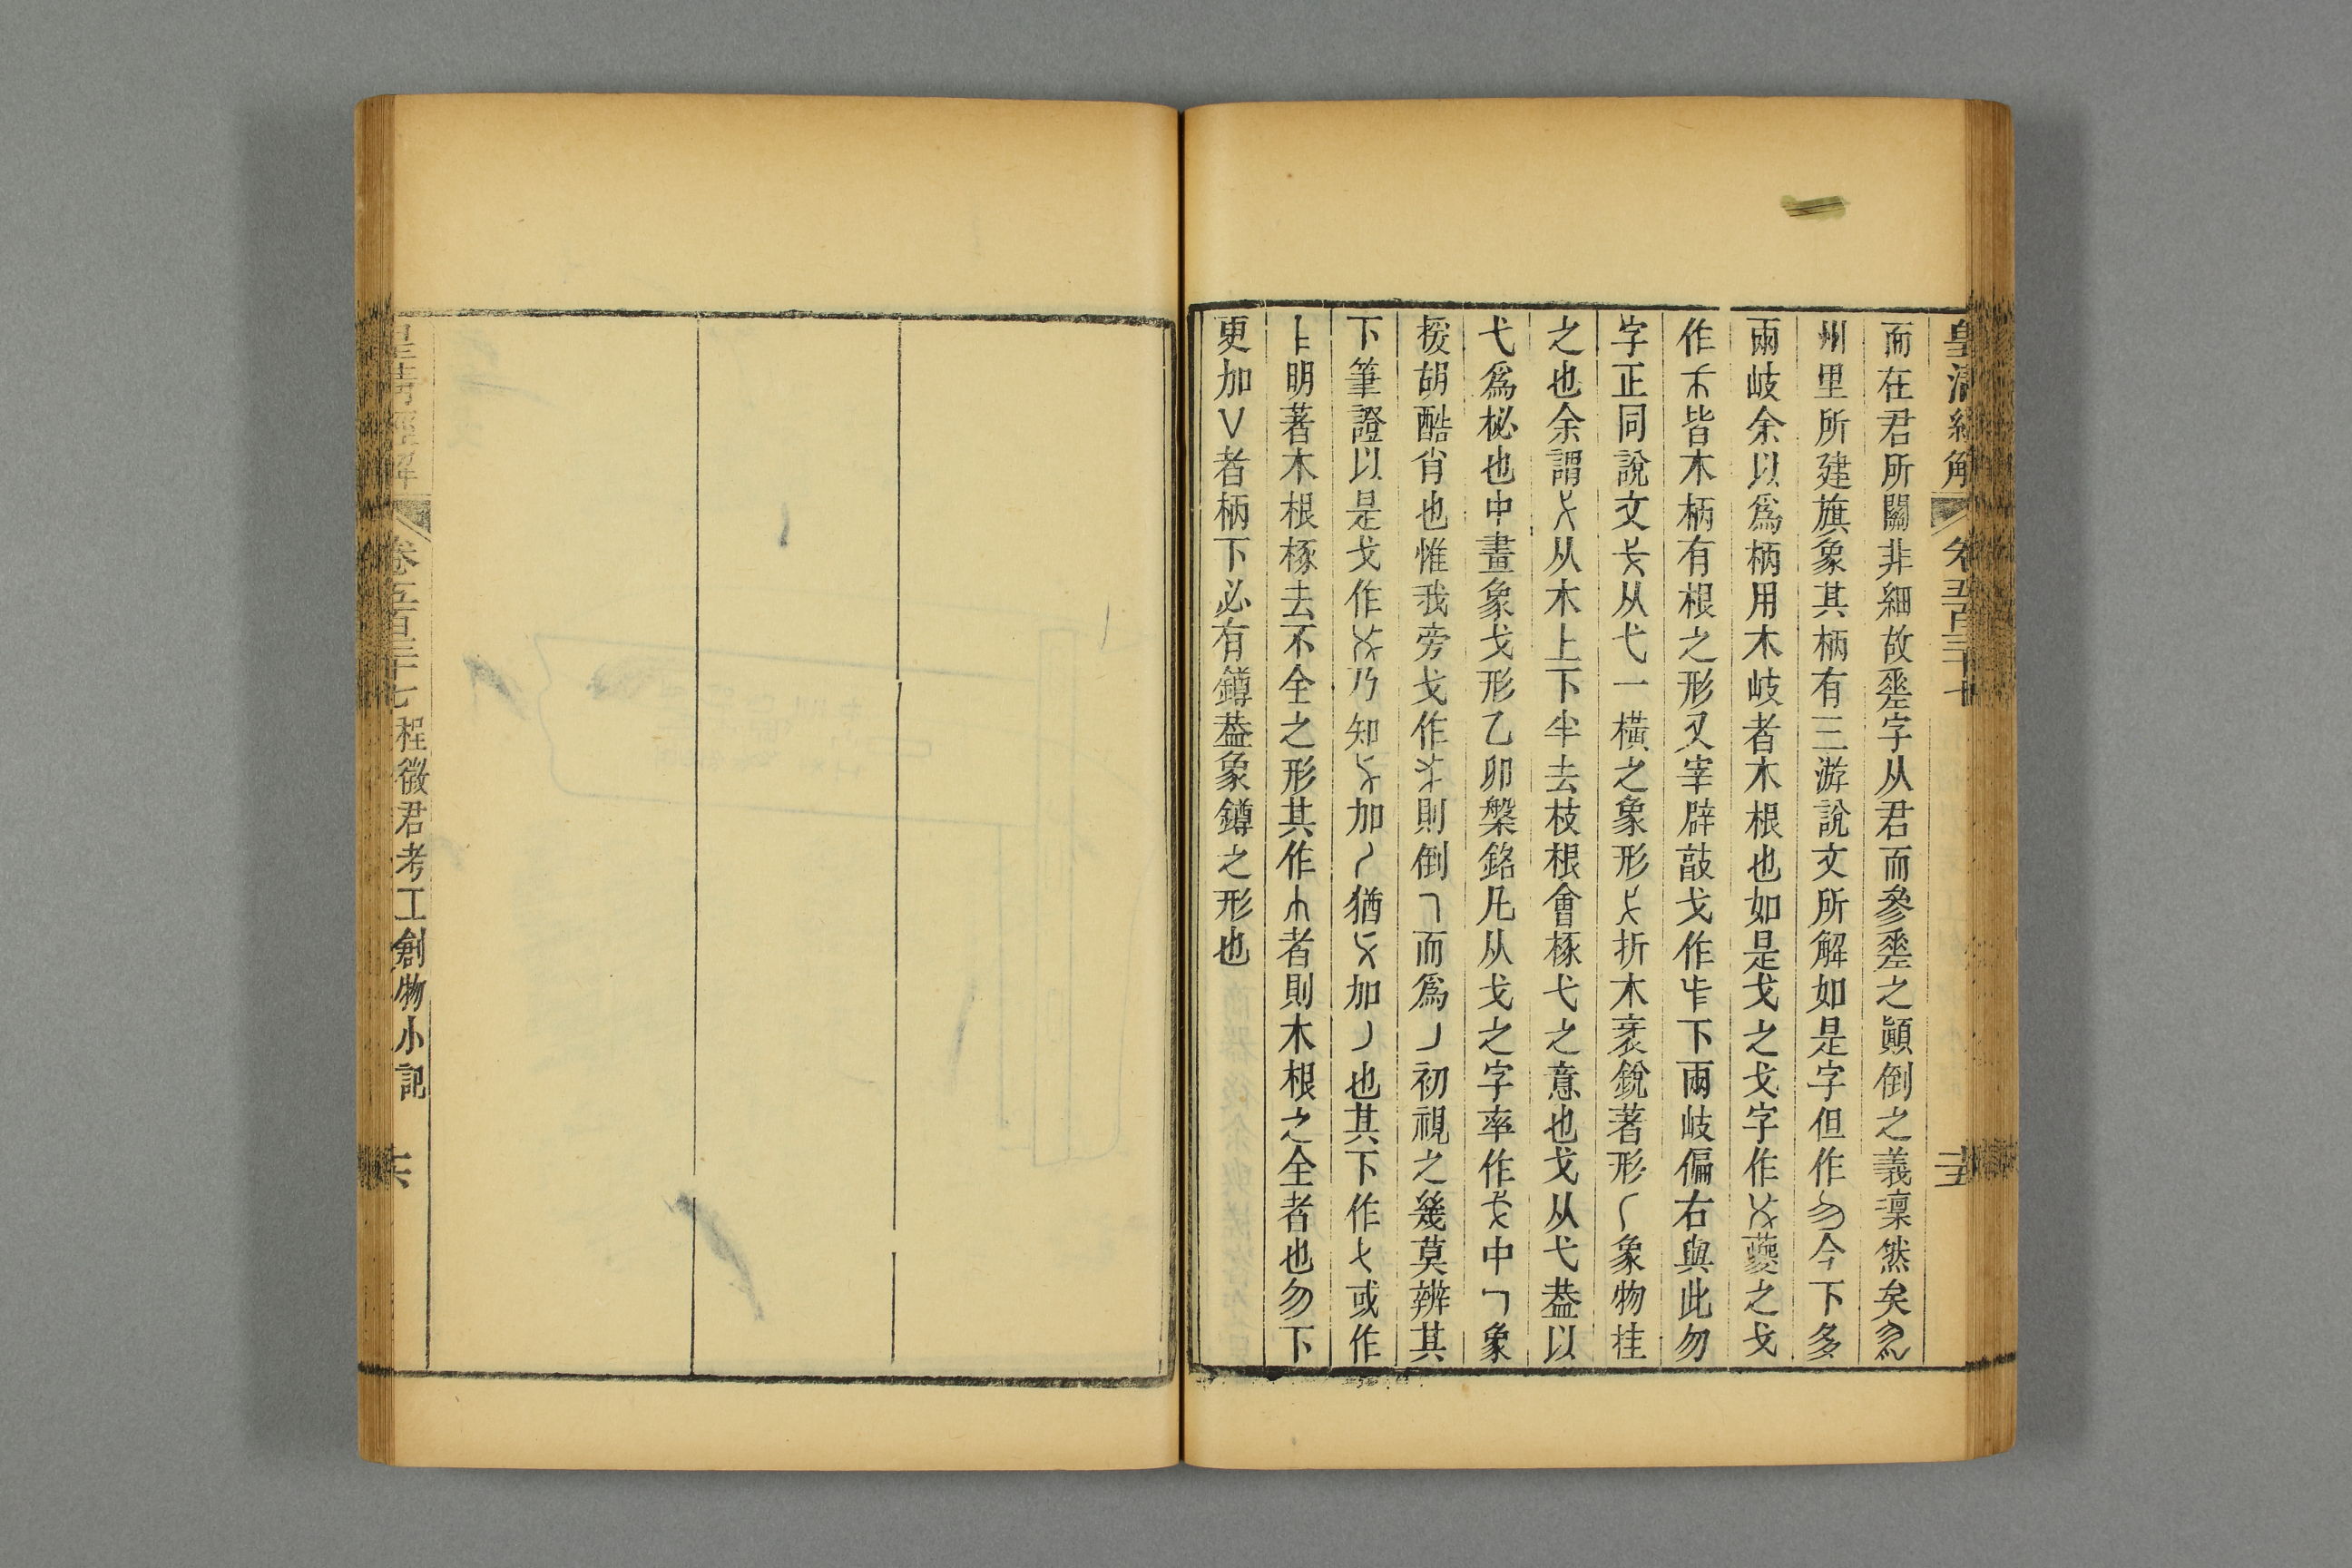 皇清經解 卷五百三十七 十五
而在君所關非細故坙字从君而參坙之顚倒之義凜然矣
州里所建旗象其柄有三游說文所解如是字但作勿今下多
兩岐余以爲柄用木岐者木根也如是戈之戈字作 之戈
作 皆木柄有根之形又宰辟敼戈作 下兩岐偏右與此勿
字正同說文 从弋一橫之象形 折木衺銳著形 象物挂
之也余謂 从木上下半去枝根會椓弋之意也戈从弋葢以
弋爲柲也中畫象戈形乙卯槃銘凡从戈之字率作 中 象
援胡酷肖也惟我旁戈作 則倒 而爲 初視之幾莫辨其
下筆證以是戈作 乃知 加 猶 加 也其下作 或作
明著木根椓去不全之形其作 者則木根之全者也勿下
更加 者柄下必有鐏葢象鐏之形也
皇清經解 卷五百三十七 程徵君考工創物小記 十六